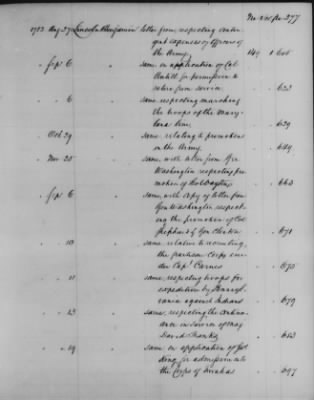 1783 Aug 27 Lincoln Benjamin letter from respecting contin-
gent expenses of Officers of
the Army 149 1 605
" Sep 6 " same on application of Col
for permission to
retire from service 623
" 6 " same respecting marching
the troops of the Mary-
land line 629
" Oct 29 " same relating to promotions
in the Army 649
" Nov 25 " same with letter from Gen
Washington respecting pro-
motion of 663
" Sep 6 " same with copy of letter from
Gen Washington respect-
ing the promotion of Col
& Gen Clinton 671
" 10 " same relative to recruiting
the partisan Corps un-
der Capt Carnes 675
" 11 " same respecting troops for
expedition by Pennsyl-
vania against Indians 679
" 13 " same respecting the
in favor of Maj
David Franks 683
" 29 " same on application of
King for admission into
the Corps of Invalids 697